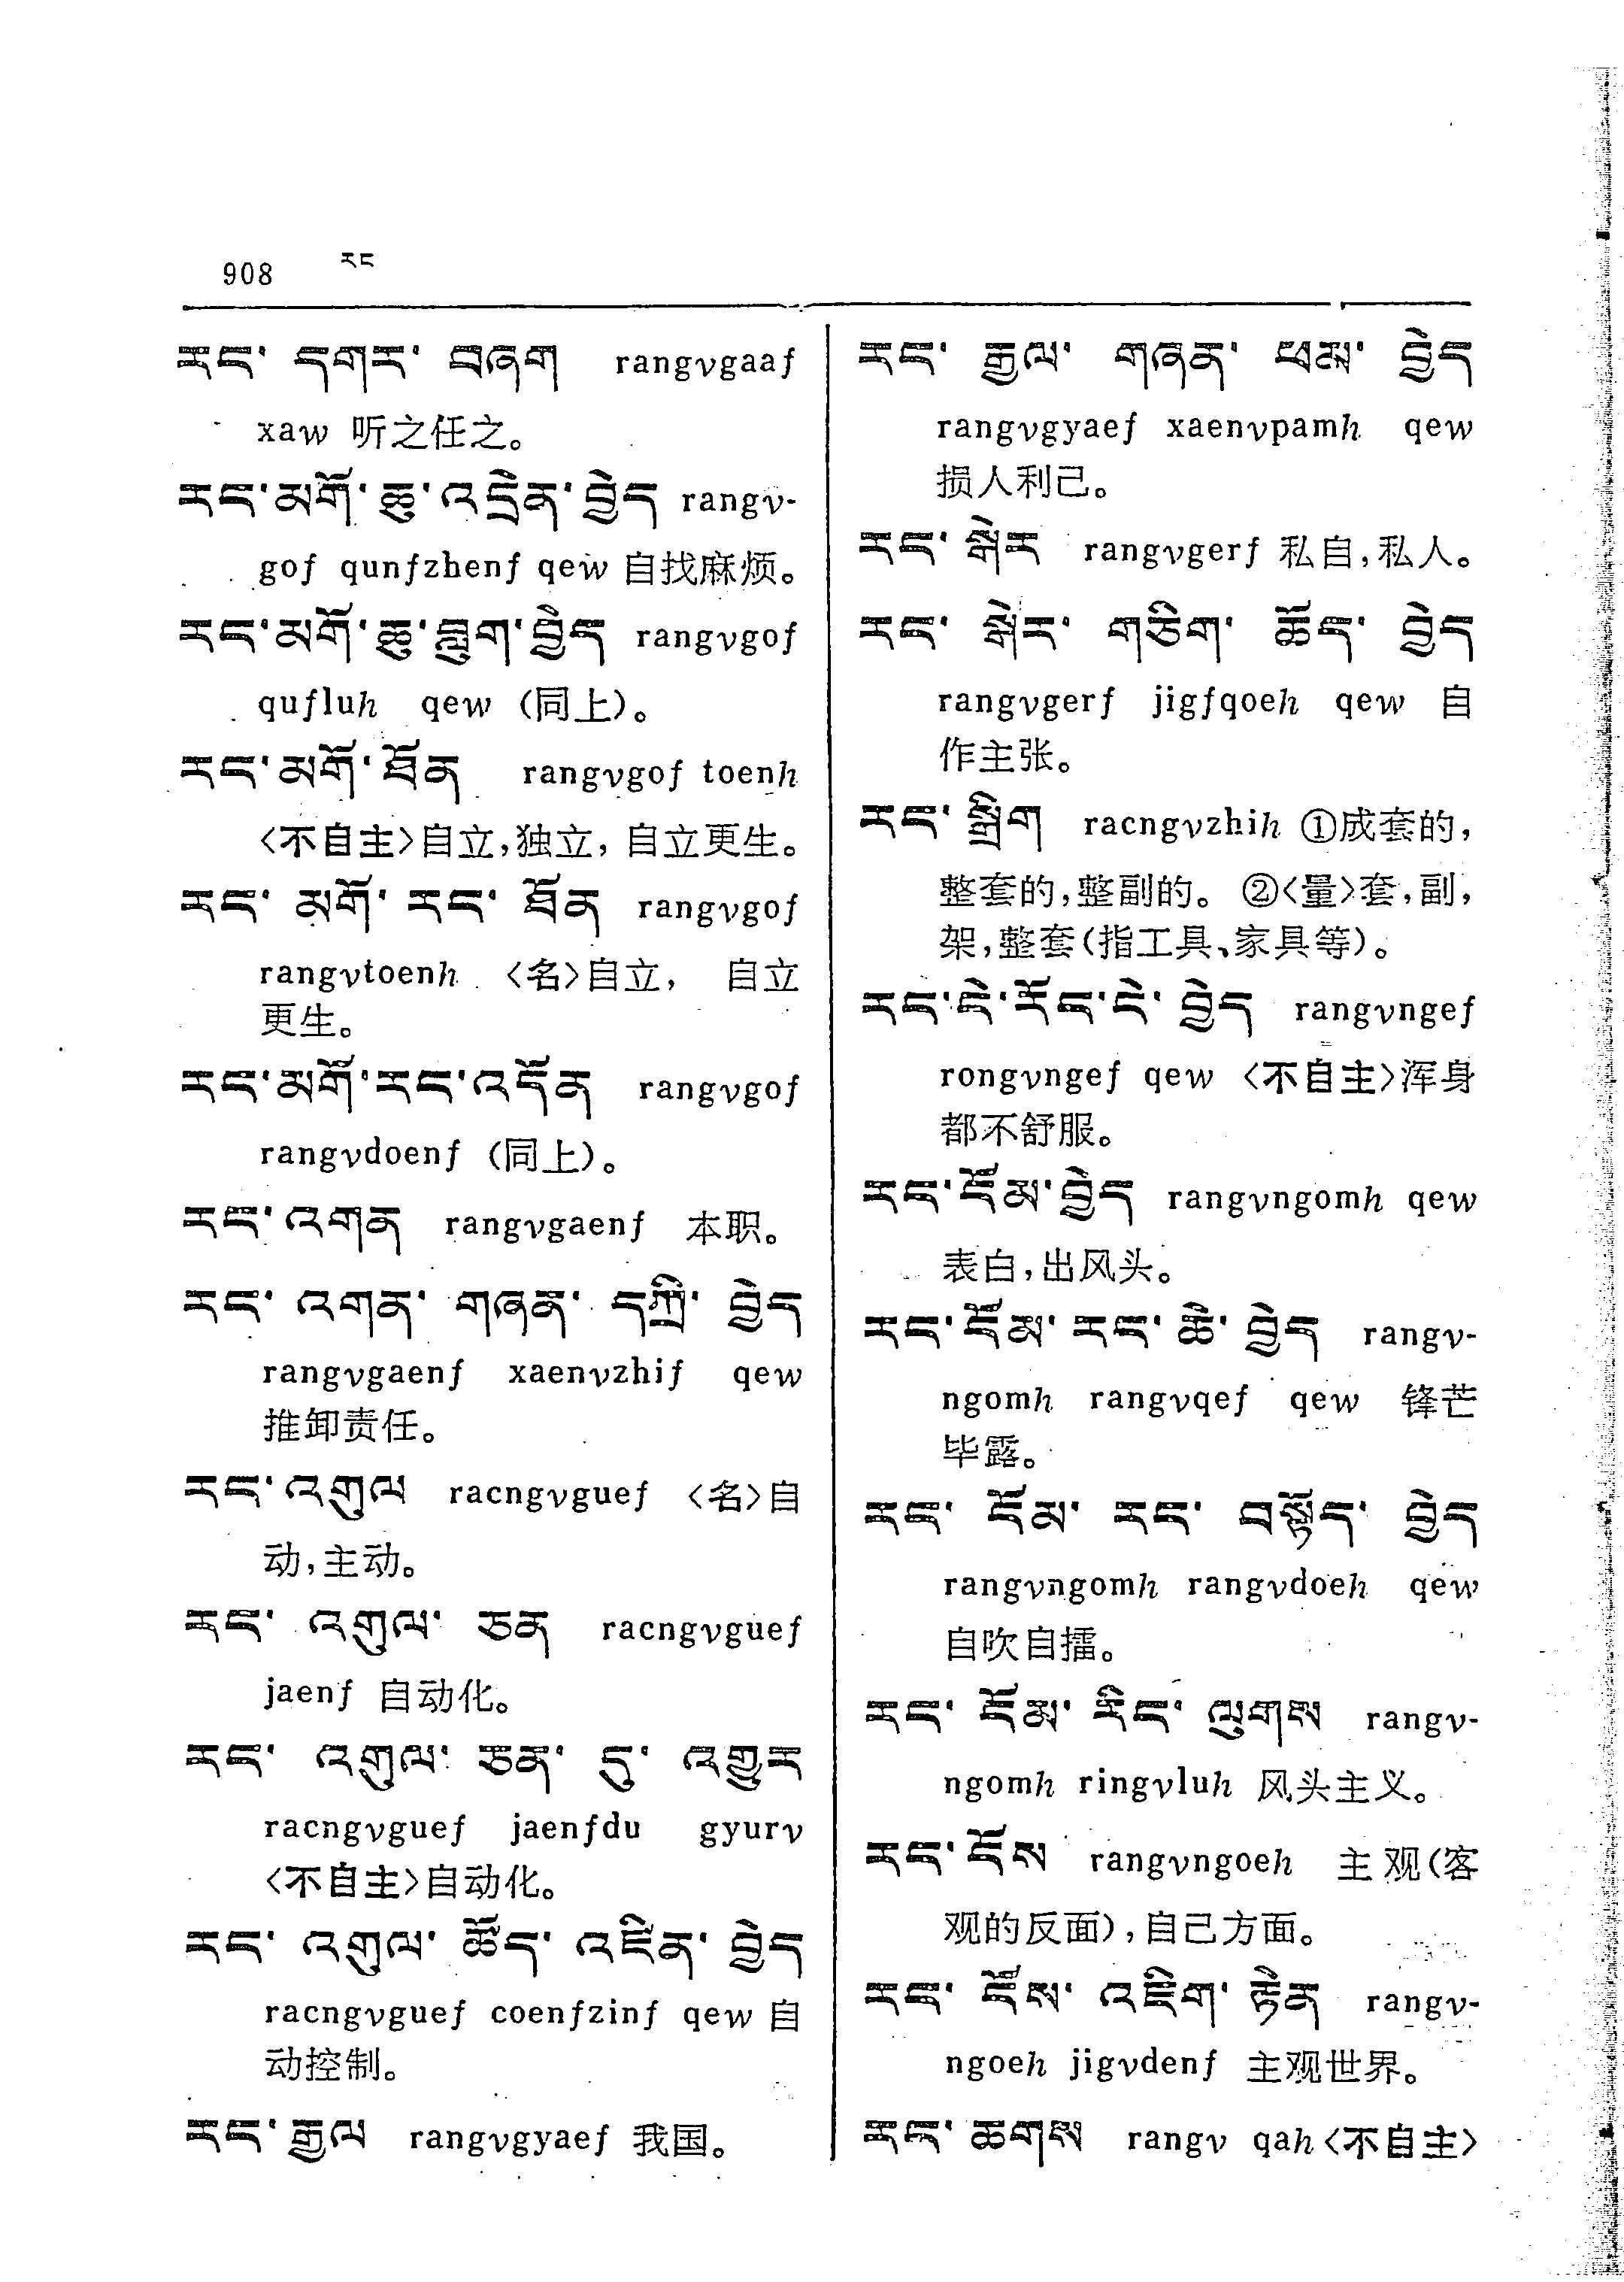 908 རང
རང་ དགར་ བཞག rangvgaaf
xaw 听之任之。
རང་མགོ་ཆུ་འདྲེན་བྱེད rangv-
gof qunfzhenf qew 自找麻烦。
རང་མགོ་ཆུ་བླུག་བྱེད rangvgof
qufluh qew (同上)。
རང་མགོ་ཐོན rangvgof toenh
〈不自主〉自立,独立, 自立更生。
རང་ མགོ་ རང་ ཐོན rangvgof
rangvtoenh 〈名〉自立, 自立
更生。
རང་མགོ་རང་འདོན rangvgof
rangvdoenf (同上)。
རང་འགན rangvgaenf 本职。
རང་ འགན་ གཞན་ དཀྲི་ བྱེད
rangvgaenf xaenvzhif qew
推卸责任。
རང་འགུལ racngvguef 〈名〉自
动,主动。
རང་ འགུལ་ ཅན racngvguef
jaenf 自动化。
རང་ འགུལ་ ཅན་ དུ་ འགྱུར
racngvguef jaenfdu gyurv
〈不自主〉自动化。
རང་ འགུལ་ ཚོད་ འཛིན་ བྱེད
racngvguef coenfzinf qew 自
动控制。
རང་རྒྱལ rangvgyaef 我国。
རང་ རྒྱལ་ གཞན་ ཕམ་ བྱེད
rangvgyaef xaenvpamh qew
损人利己。
རང་སྒེར rangvgerf 私自,私人。
རང་ སྒེར་ གཅིག་ ཆོད་ བྱེད
rangvgerf jigfqoeh qew 自
作主张。
རང་སྒྲིག racngvzhih ①成套的,
整套的,整副的。 ②〈量〉套,副,
架,整套(指工具、家具等)。
རང་ངེ་རོང་ངེ་བྱེད rangvngef
rongvngef qew 〈不自主〉浑身
都不舒服。
རང་ངོམ་བྱེད rangvngomh qew
表白,出风头。
རང་ངོམ་རང་ཆེ་བྱེད rangv-
ngomh rangvqef qew 锋芒
毕露。
རང་ ངོམ་ རང་ བསྟོད་ བྱེད
rangvngomh rangvdoeh qew
自吹自擂。
རང་ ངོམ་ རིང་ ལུགས rangv-
ngomh ringvluh 风头主义。
རང་ངོས rangvngoeh 主观(客
观的反面),自己方面。
རང་ ངོས་ འཇིག་ རྟེན rangv-
ngoeh jigvdenf 主观世界。
རང་ཆགས rangv qah〈不自主〉